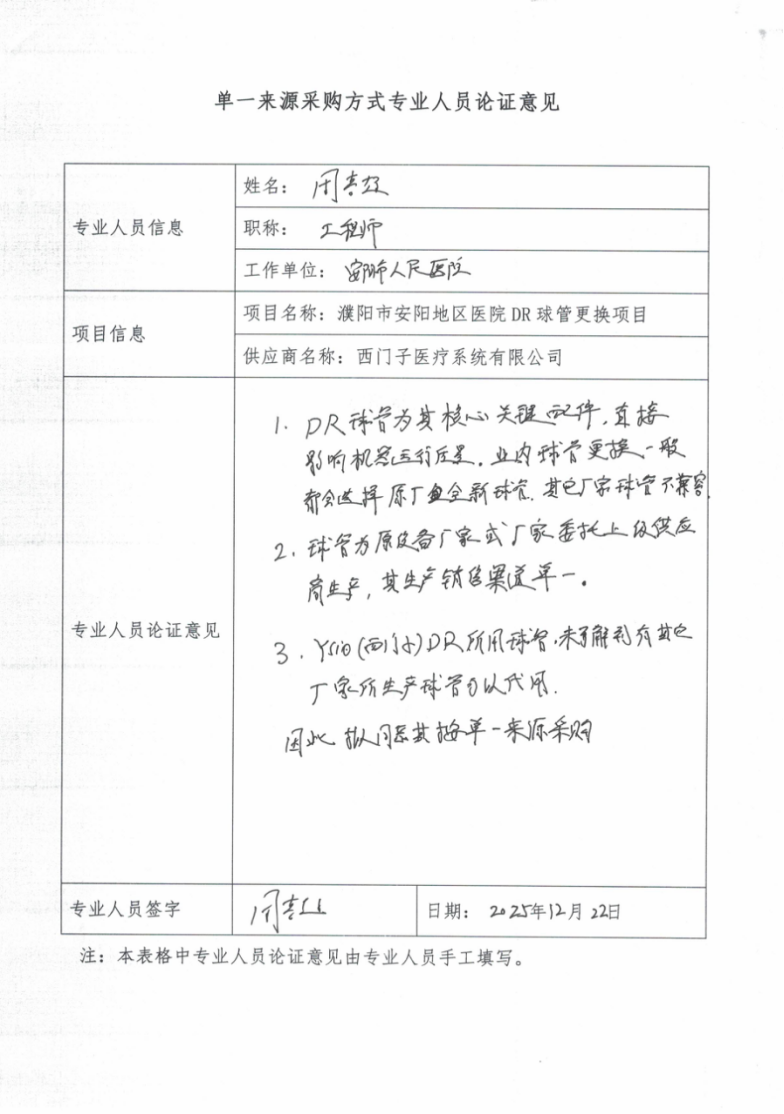 单一来源采购方式专业人员论证意见
专业人员信息
姓名：
职称： 工程师
工作单位： 人民医院
项目信息
项目名称：濮阳市安阳地区医院DR球管更换项目
供应商名称：西门子医疗系统有限公司
专业人员论证意见
1. DR球管为其核心关键配件，直接
影响机器运行质量，业内球管更换一般
都会选择原厂全新球管，其它厂家球管不兼容.
2. 球管为原设备厂家或厂家委托上级供应
商生产，其生产销售渠道单一。
3. Ysio(西门子)DR所用球管，未了解到有其它
厂家所生产球管可以代用.
因此拟同意其按单一来源采购
专业人员签字
日期： 2025年12月22日
注：本表格中专业人员论证意见由专业人员手工填写。